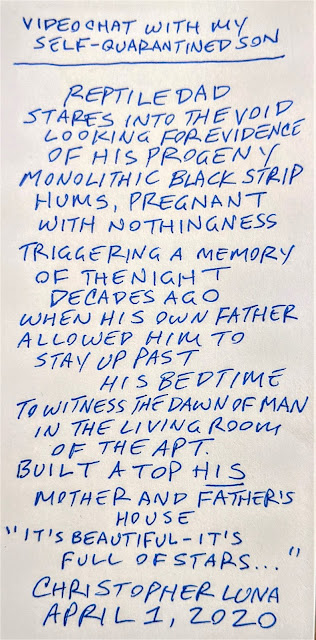 VIDEOCHAT WITH MY
SELF-QUARANTINED SON
REPTILE DAD
STARES INTO THE VOID
LOOKING FOR EVIDENCE
OF HIS PROGENY
MONOLITHIC BLACK STRIP
HUMS, PREGNANT
WITH NOTHINGNESS
TRIGGERING A MEMORY
OF THE NIGHT
DECADES AGO
WHEN HIS OWN FATHER
ALLOWED HIM TO
STAY UP PAST
HIS BEDTIME
TO WITNESS THE DAWN OF MAN
IN THE LIVING ROOM
OF THE APT.
BUILT ATOP HIS
MOTHER AND FATHER'S
HOUSE
"IT'S BEAUTIFUL-IT'S
FULL OF STARS..."
CHRISTOPHER LUNA
APRIL 1, 2020